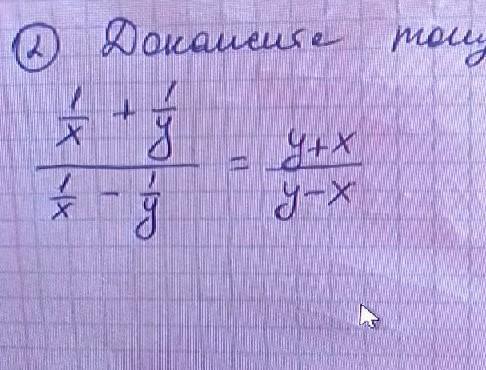 ② Докажите тож
(1/x + 1/y) / (1/x - 1/y) = (y+x) / (y-x)